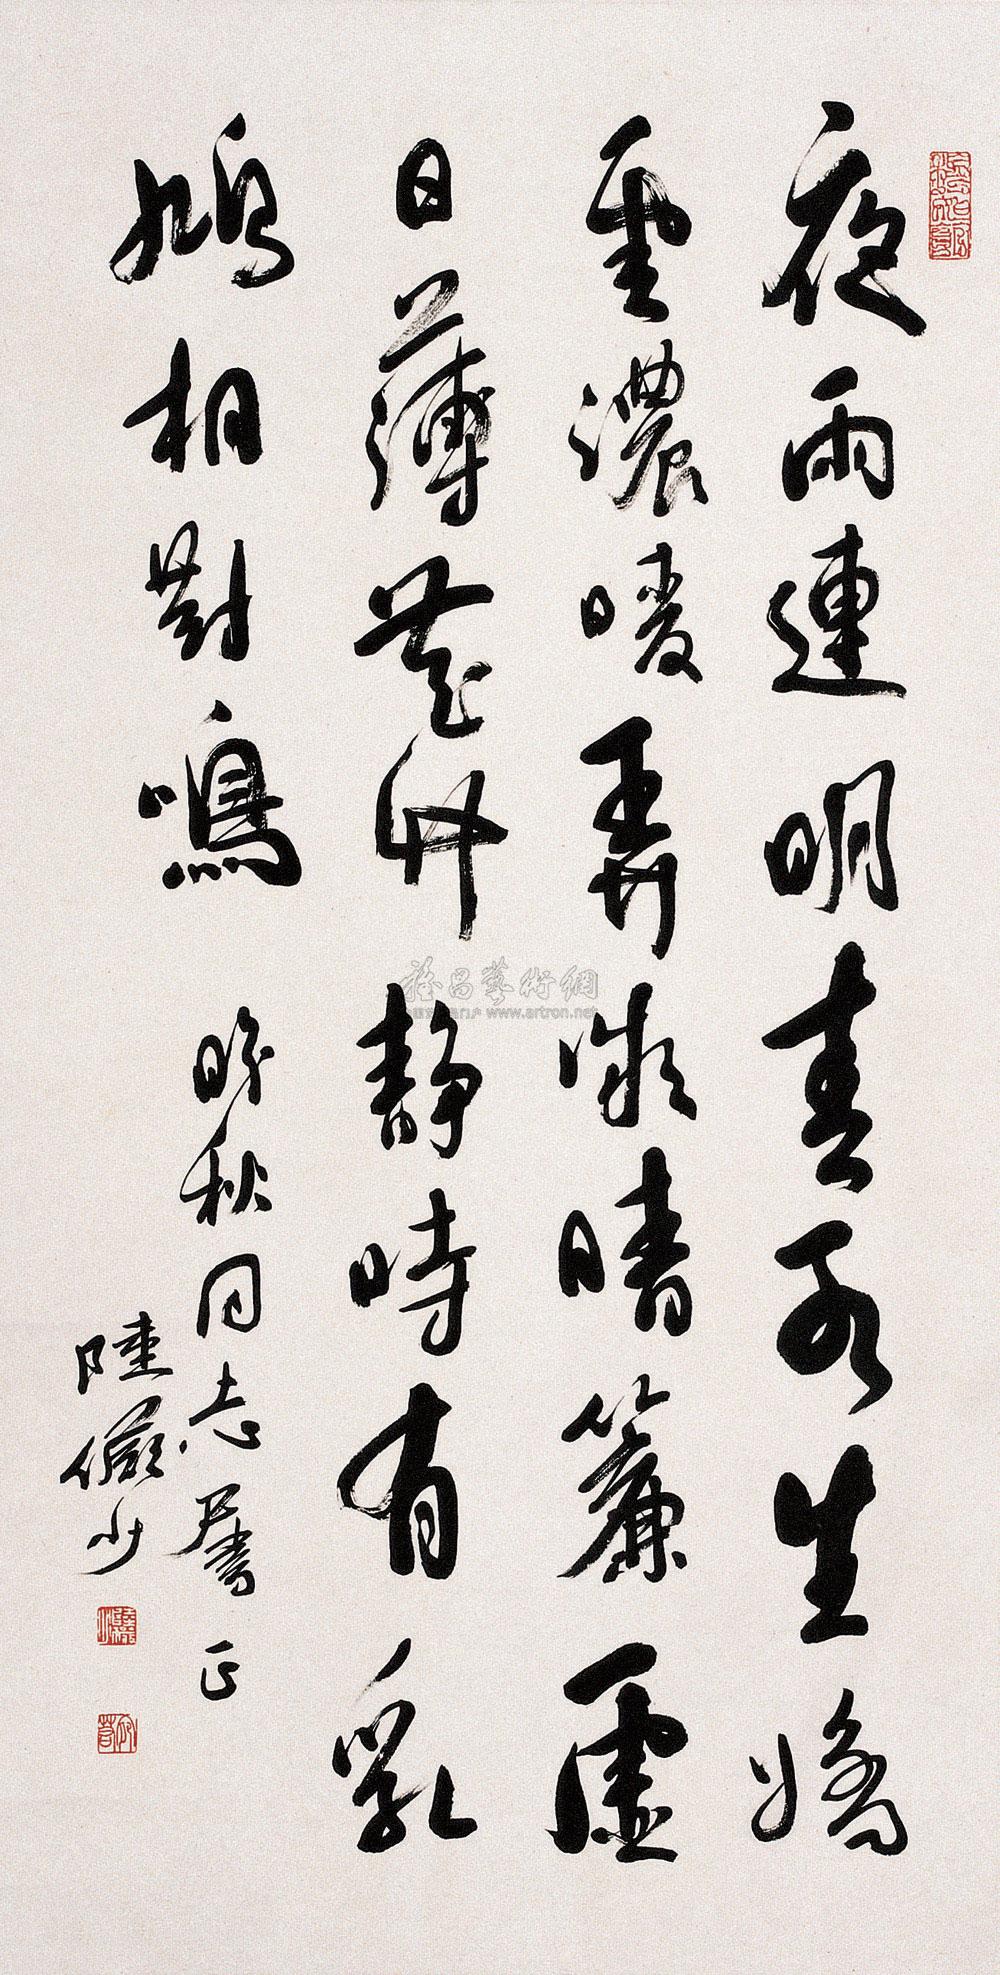 夜雨連明春水生嬌
雲濃暖弄微晴簾虛
日薄花竹靜時有乳
鳩相對鳴
秋同志屬書正
陸儼少
雅昌藝術網
www.artron.net